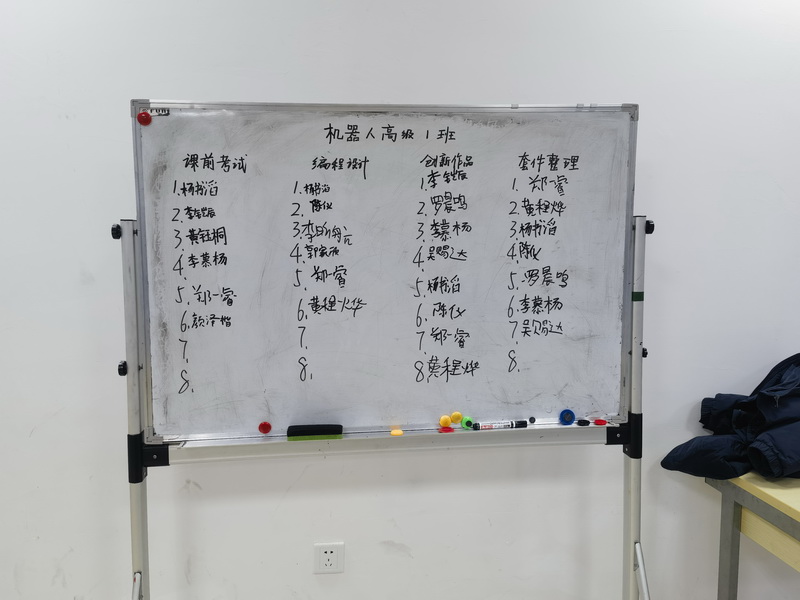 机器人高级1班
课前考试
1.杨书滔
2.李
3.黄钰桐
4.李慕杨
5.郑一睿
6.颜泽楷
7.
8.
编程设计
1.杨书滔
2.陈仪
3.李昀
4.郭家
5.郑一睿
6.黄程烨
7.
8.
创新作品
1.李
2.罗晨鸣
3.李慕杨
4.吴赐达
5.杨书滔
6.陈仪
7.郑一睿
8.黄程烨
套件整理
1.郑一睿
2.黄程烨
3.杨书滔
4.陈仪
5.罗晨鸣
6.李慕杨
7.吴赐达
8.